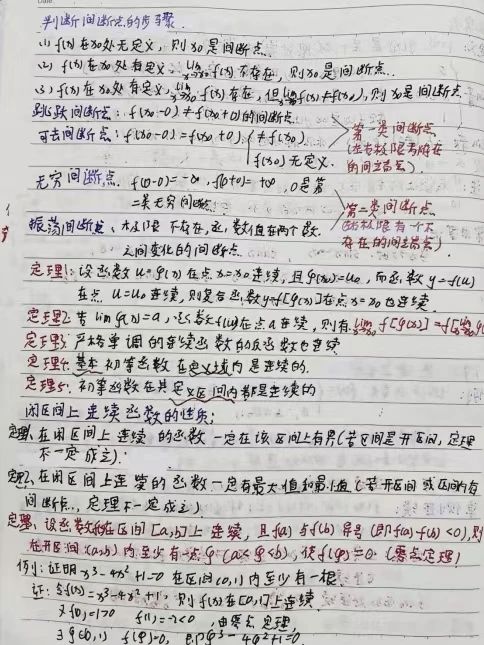 判断间断点的步骤.
(1) f(x)在x0处无定义，则x0是间断点.
(2) f(x)在x0处有定义，lim x→x0 f(x)不存在，则x0是间断点.
(3) f(x)在x0处有定义，lim x→x0 f(x)存在，但lim x→x0 f(x)≠f(x0)，则x0是间断点
跳跃间断点：f(x0-0)≠f(x0+0)的间断点
可去间断点：f(x0-0)=f(x0+0) {≠f(x0)
f(x0)无定义.
第一类间断点
(左右极限都存在
的间断点).
无穷间断点. f(0-0)=-∞, f(0+0)=+∞, 0是第
二类无穷间断点.
振荡间断点、极限不存在，函数值在两个数
之间变化的间断点.
第二类间断点
(左右极限有一个不
存在的间断点)
定理1:设函数u=φ(x)在点x=x0连续，且φ(x0)=u0，而函数y=f(u)
在点u=u0连续，则复合函数y=f[φ(x)]在点x=x0也连续.
定理2:若limφ(x)=a，函数f(u)在点a连续，则有lim x→x0 f[φ(x)]=f[lim x→x0 φ
定理3:严格单调的连续函数的反函数也连续.
定理4:基本初等函数在定义域内是连续的.
定理5:初等函数在其定义区间内都是连续的
闭区间上连续函数的性质;
定理1、在闭区间上连续的函数一定在该区间上有界(若区间是开区间，定理
不一定成立).
定理2、在闭区间上连续的函数一定有最大值和最小值(若开区间或区间内有
间断点，定理不一定成立
定理3、设函数f(x)在区间[a,b]上连续，且f(a)与f(b)异号(即f(a)·f(b)<0),则
在开区间(a,b)内至少有一点φ(a<φ<b)，使f(φ)=0.(零点定理)
例:证明x³-4x²+1=0在区间(0,1)内至少有一根.
证:令f(x)=x³-4x²+1，则f(x)在[0,1]上连续.
又f(0)=1>0 f(1)=-2<0，由零点定理，
∃φ∈(0,1) f(φ)=0，即φ³-4φ²+1=0